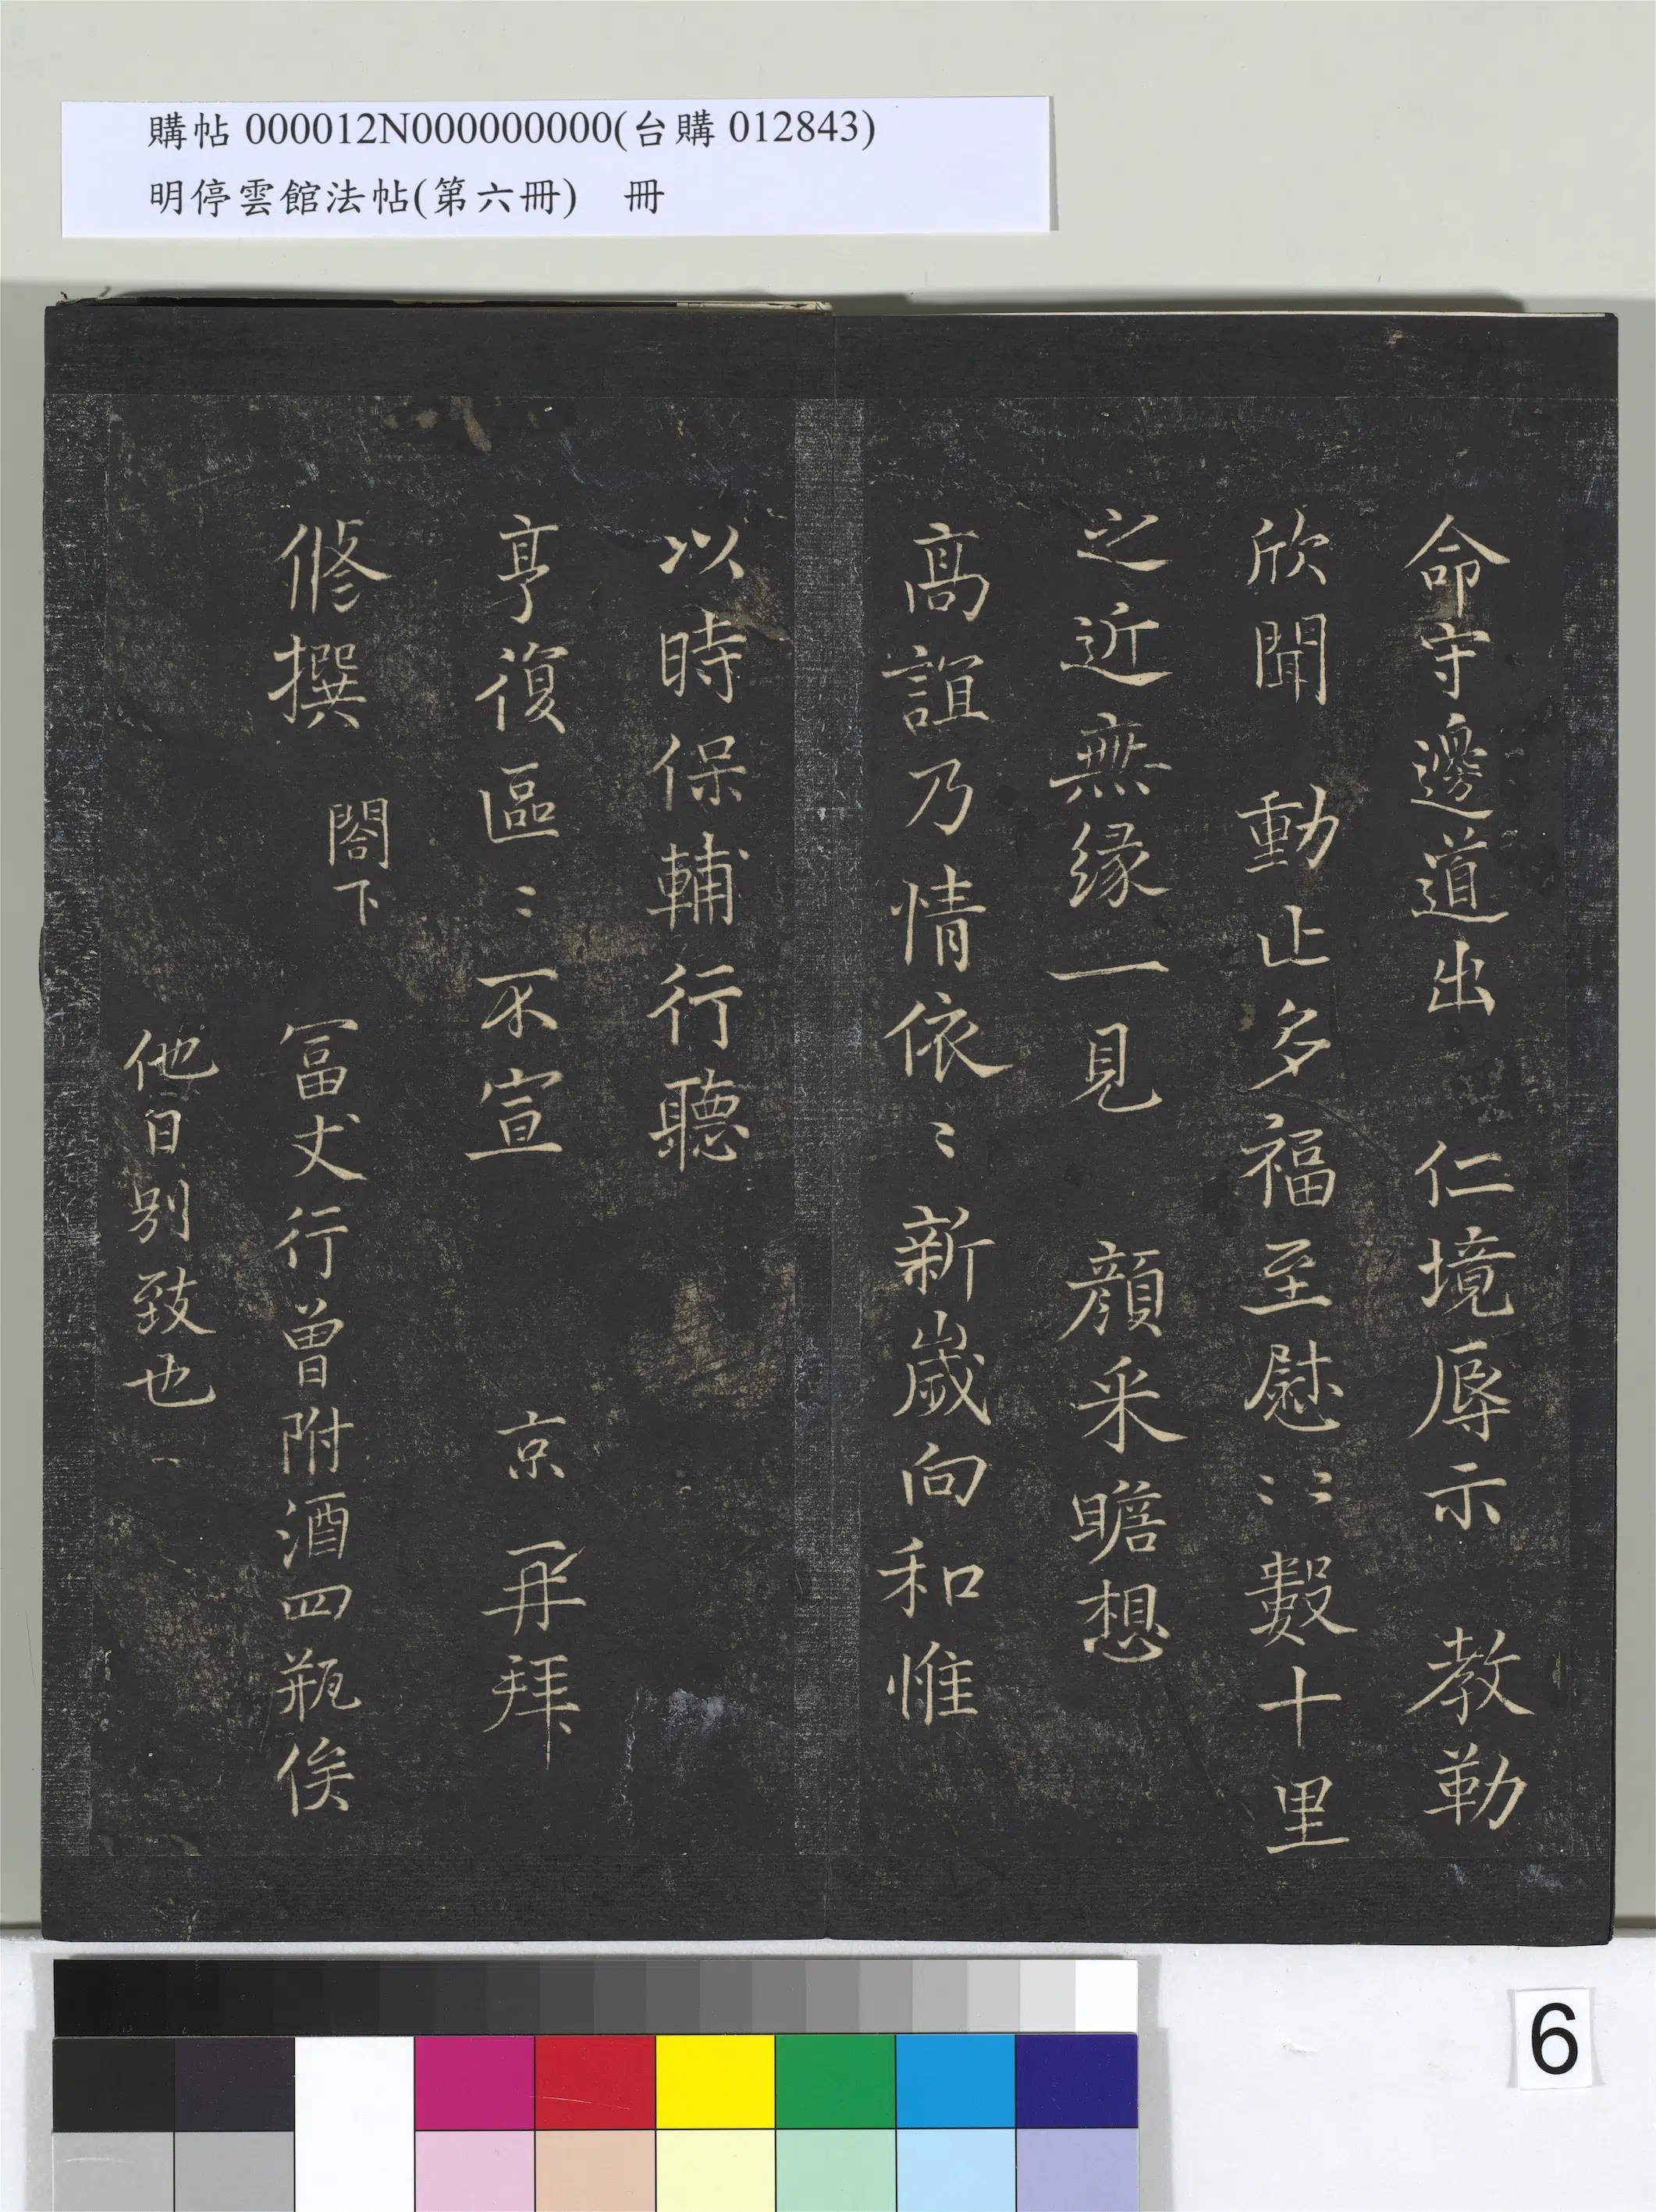 購帖 000012N000000000(台購 012843)
明停雲館法帖(第六冊) 冊
命守邊道出 仁境辱示 教勤
欣聞 動止多福至慰〻〻數十里
之近無緣一見 顏采瞻想
高誼乃情依〻新歲向和惟
以時保輔行聽
亨復區〻不宣 京再拜
修撰 閣下 冨丈行曾附酒四瓶俟
他日别致也
6